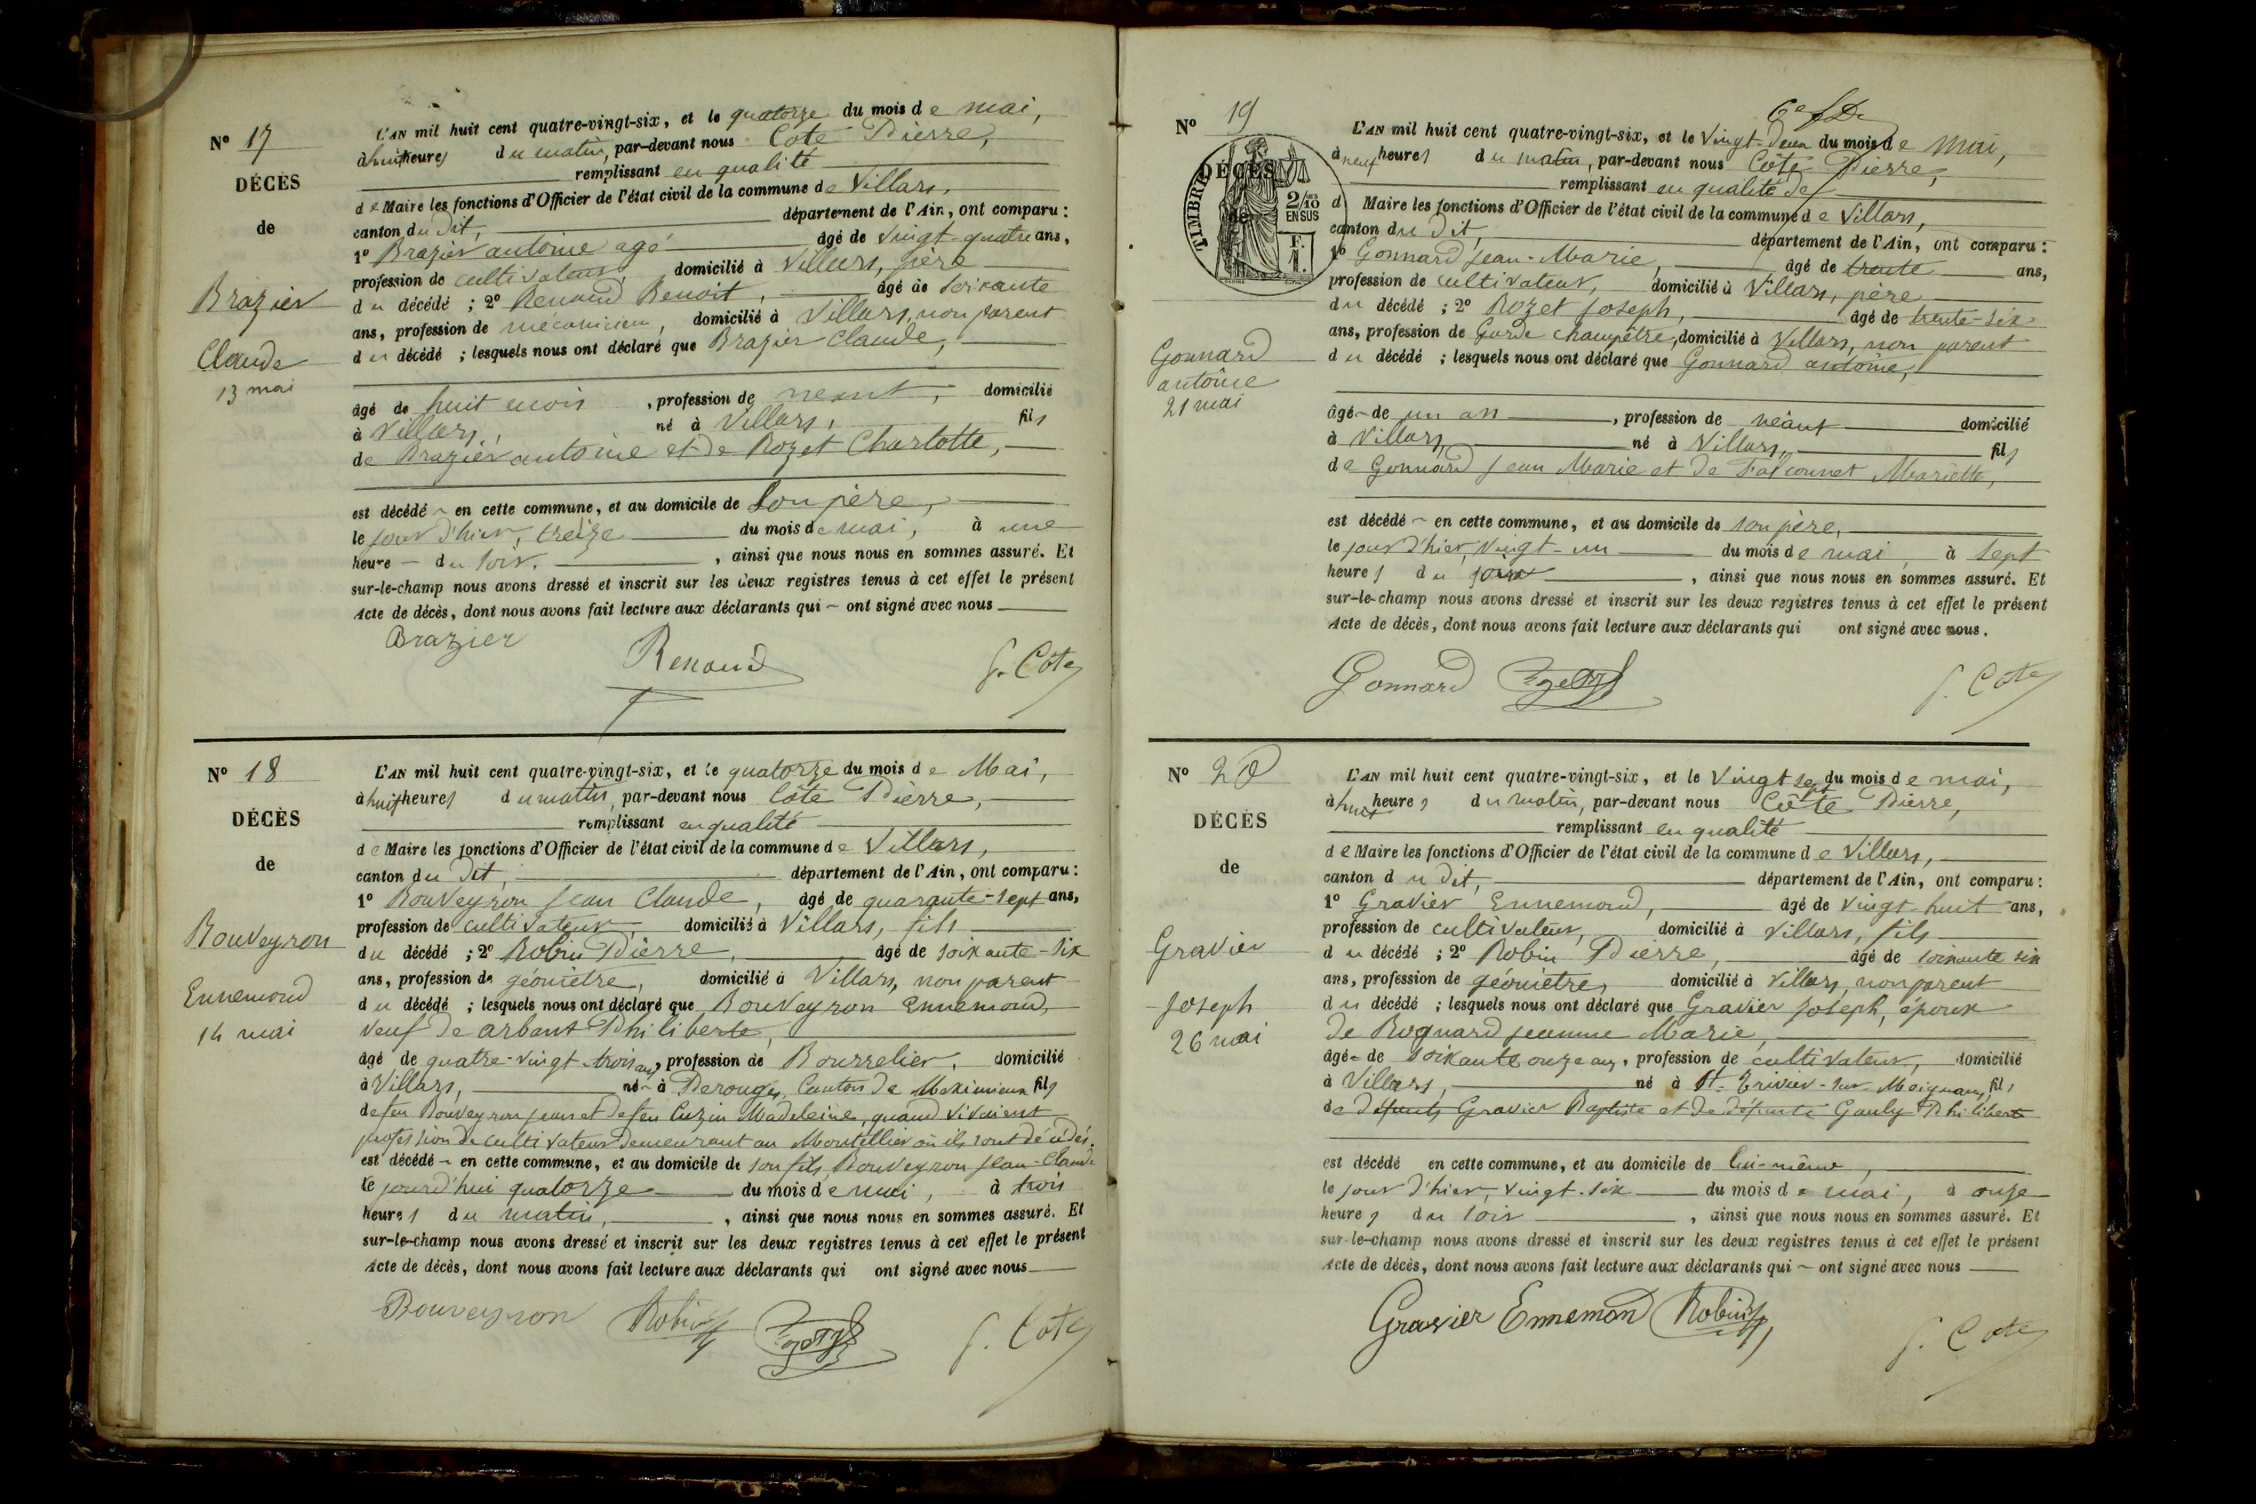 N° 17
DÉCÈS
de
Brazier
Claude
13 mai
L'AN mil huit cent quatre-vingt-six, et le quatorze du mois de mai,
à huit heures du matin, par-devant nous Côte Pierre,
remplissant en qualité
de Maire les fonctions d'Officier de l'état civil de la commune de Villars,
canton du dit, département de l'Ain, ont comparu :
1° Brazier antoine agé âgé de vingt-quatre ans,
profession de cultivateur, domicilié à Villars, père
du décédé ; 2° Renaud Benoit, âgé de soixante
ans, profession de mécanicien, domicilié à Villars, non parent
du décédé ; lesquels nous ont déclaré que Brazier Claude,
âgé de huit mois, profession de neant, domicilié
à Villars, né à Villars, fils
de Brazier antoine et de Rozet Charlotte,
est décédé en cette commune, et au domicile de Son père,
le jour d'hier, treize du mois de mai, à une
heure du soir, ainsi que nous nous en sommes assuré. Et
sur-le-champ nous avons dressé et inscrit sur les deux registres tenus à cet effet le présent
Acte de décès, dont nous avons fait lecture aux déclarants qui ont signé avec nous
Brazier Renaud P. Côte
N° 18
DÉCÈS
de
Bouveyron
Ennemond
14 mai
L'AN mil huit cent quatre-vingt-six, et le quatorze du mois de Mai,
à huit heures du matin, par-devant nous Côte Pierre,
remplissant en qualité
de Maire les fonctions d'Officier de l'état civil de la commune de Villars,
canton du dit, département de l'Ain, ont comparu :
1° Bouveyron Jean Claude, âgé de quarante-sept ans,
profession de cultivateur, domicilié à Villars, fils
du décédé ; 2° Robin Pierre, âgé de soixante-six
ans, profession de géomètre, domicilié à Villars, non parent
du décédé ; lesquels nous ont déclaré que Bouveyron Ennemond,
veuf de arbant Philiberte,
âgé de quatre-vingt-trois ans, profession de Bourrelier, domicilié
à Villars, né à Perouges, Canton de Meximieux fils
de feu Bouveyron Jean et de feu Cuzin Madeleine, quand vivaient
profession de cultivateur demeurant au Montellier où ils sont décédés.
est décédé en cette commune, et au domicile de son fils Bouveyron Jean-Claude
le jourd'hui quatorze du mois de mai, à trois
heures du matin, ainsi que nous nous en sommes assuré. Et
sur-le-champ nous avons dressé et inscrit sur les deux registres tenus à cet effet le présent
Acte de décès, dont nous avons fait lecture aux déclarants qui ont signé avec nous
Bouveyron Robin P. Côte
N° 19
DÉCÈS
de
TIMBRE
2/10
EN SUS
F.
1.
Gonnard
antoine
21 mai
L'AN mil huit cent quatre-vingt-six, et le vingt-deux du mois de Mai,
à neuf heures du matin, par-devant nous Côte Pierre,
remplissant en qualité de
d Maire les fonctions d'Officier de l'état civil de la commune de Villars,
canton du dit, département de l'Ain, ont comparu :
1° Gonnard Jean-Marie, âgé de trente ans,
profession de cultivateur, domicilié à Villars, père
du décédé ; 2° Rozet Joseph, âgé de trente-six
ans, profession de Garde champêtre, domicilié à Villars, non parent
du décédé ; lesquels nous ont déclaré que Gonnard antoine,
âgé de un an, profession de néant domicilié
à Villars, né à Villars, fils
de Gonnard Jean Marie et de Falconnet Mariette,
est décédé en cette commune, et au domicile de son père,
le jour d'hier, vingt-un du mois de mai, à sept
heures du soir, ainsi que nous nous en sommes assuré. Et
sur-le-champ nous avons dressé et inscrit sur les deux registres tenus à cet effet le présent
Acte de décès, dont nous avons fait lecture aux déclarants qui ont signé avec nous.
Gonnard P. Côte
N° 20
DÉCÈS
de
Gravier
Joseph
26 mai
L'AN mil huit cent quatre-vingt-six, et le vingt sept du mois de mai,
à huit heures du matin, par-devant nous Côte Pierre,
remplissant en qualité
de Maire les fonctions d'Officier de l'état civil de la commune de Villars,
canton du dit, département de l'Ain, ont comparu :
1° Gravier Ennemond, âgé de vingt huit ans,
profession de cultivateur, domicilié à Villars, fils
du décédé ; 2° Robin Pierre, âgé de soixante six
ans, profession de géomètre, domicilié à Villars, non parent
du décédé ; lesquels nous ont déclaré que Gravier Joseph, époux
de Roguard Jeanne Marie,
âgé de soixante onze ans, profession de cultivateur, domicilié
à Villars, né à St. Trivier-sur-Moignans, fils
de défunts Gravier Baptiste et de défunte Gauly Philiberte
est décédé en cette commune, et au domicile de lui-même,
le jour d'hier, vingt-six du mois de mai, à onze
heures du soir, ainsi que nous nous en sommes assuré. Et
sur-le-champ nous avons dressé et inscrit sur les deux registres tenus à cet effet le présent
Acte de décès, dont nous avons fait lecture aux déclarants qui ont signé avec nous
Gravier Ennemond Robin P. Côte